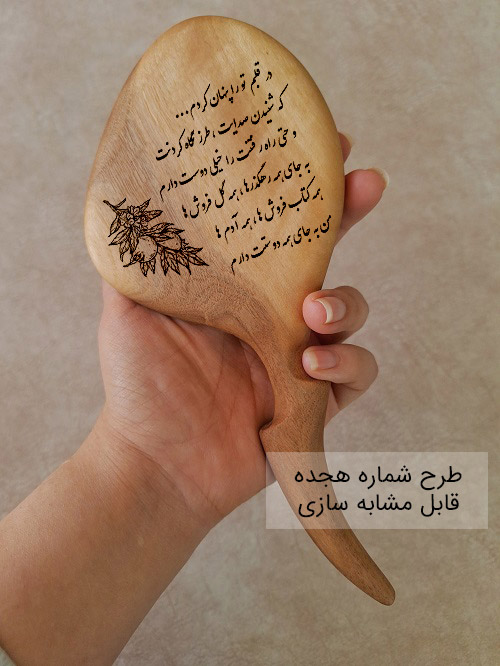 در قلبم تو را پنهان کردم...
که شنیدن صدایت، طرز نگاه کردنت
و حتی راه رفتنت را خیلی دوست دارم
به جای همه رهگذرها، همه گل فروش ها
همه کتاب فروش ها، همه آدم ها
من به جای همه دوستت دارم
طرح شماره هجده
قابل مشابه سازی